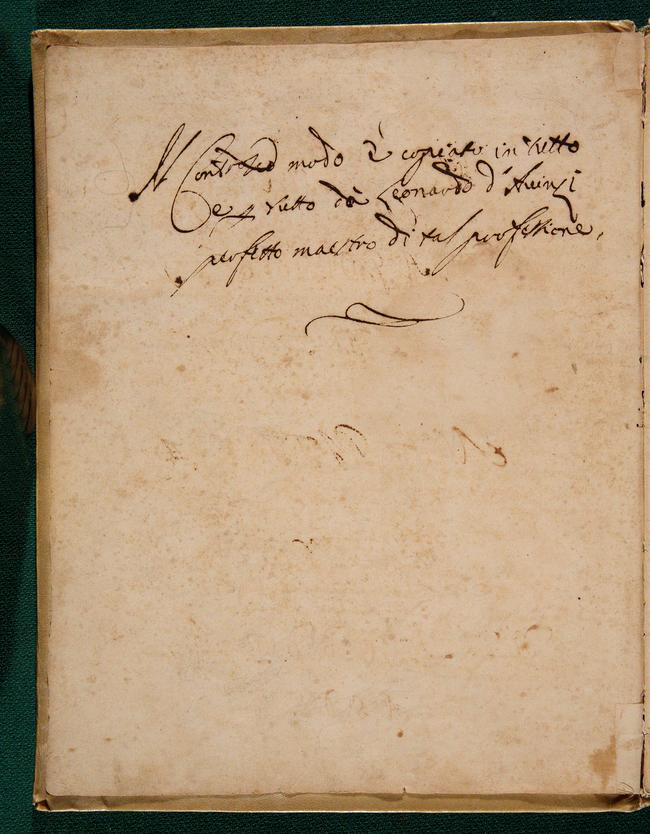 Il Contescō modo è copiato in tutto
e p tutto dà Leonardo d'Auinzi
perfetto maestro di tal professione,